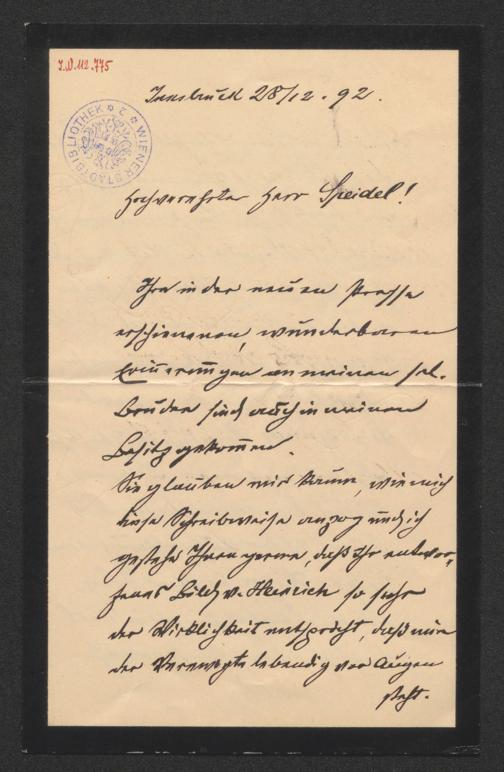 I.N.112.775
WIENER STADTBIBLIOTHEK
Innsbruck 28/12. 92.
Hochverehrter Herr Speidel!
Ihre in der neuen Presse
erschienenen, wunderbaren
Erinnerungen an meinen sel.
Bruder sind auch in meinen
Besitz gekommen.
Sie glauben mir kaum, wie mich
diese Schreibweise anzog und ich
gestehe Ihnen gerne, daß Ihr entwor-
fenes Bild v. Heinrich so sehr
der Wirklichkeit entspricht, daß mir
der Verewigte lebendig vor Augen
steht.